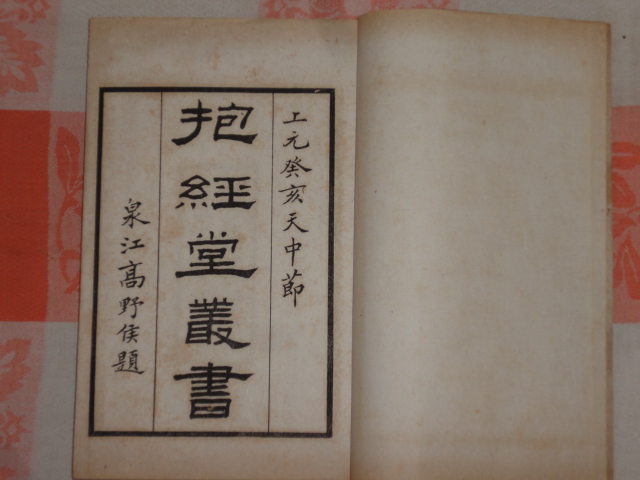 上元癸亥天中節
抱經堂叢書
泉江高野侯題